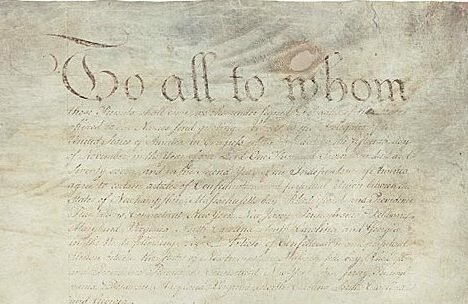 To all to whom
these Presents shall come, we the under signed Delegates of the States
affixed to our Names send greeting. Whereas the Delegates of the
United States of America in Congress assembled did on the fifteenth day
of November in the Year of our Lord One Thousand Seven Hundred and
Seventy seven, and in the Second Year of the Independence of America
agree to certain articles of Confederation and perpetual Union between the
States of Newhampshire, Massachusetts-bay, Rhodeisland and Providence
Plantations, Connecticut, New York, New Jersey, Pennsylvania, Delaware,
Maryland, Virginia, North Carolina, South Carolina and Georgia
in the Words following, Articles of Confederation and perpetual
Union between the States of Newhampshire, Massachusetts-bay, Rhodeisland
and Providence Plantations, Connecticut, New York, New Jersey, Pennsyl
vania, Delaware, Maryland, Virginia, North Carolina, South Carolina
and Georgia